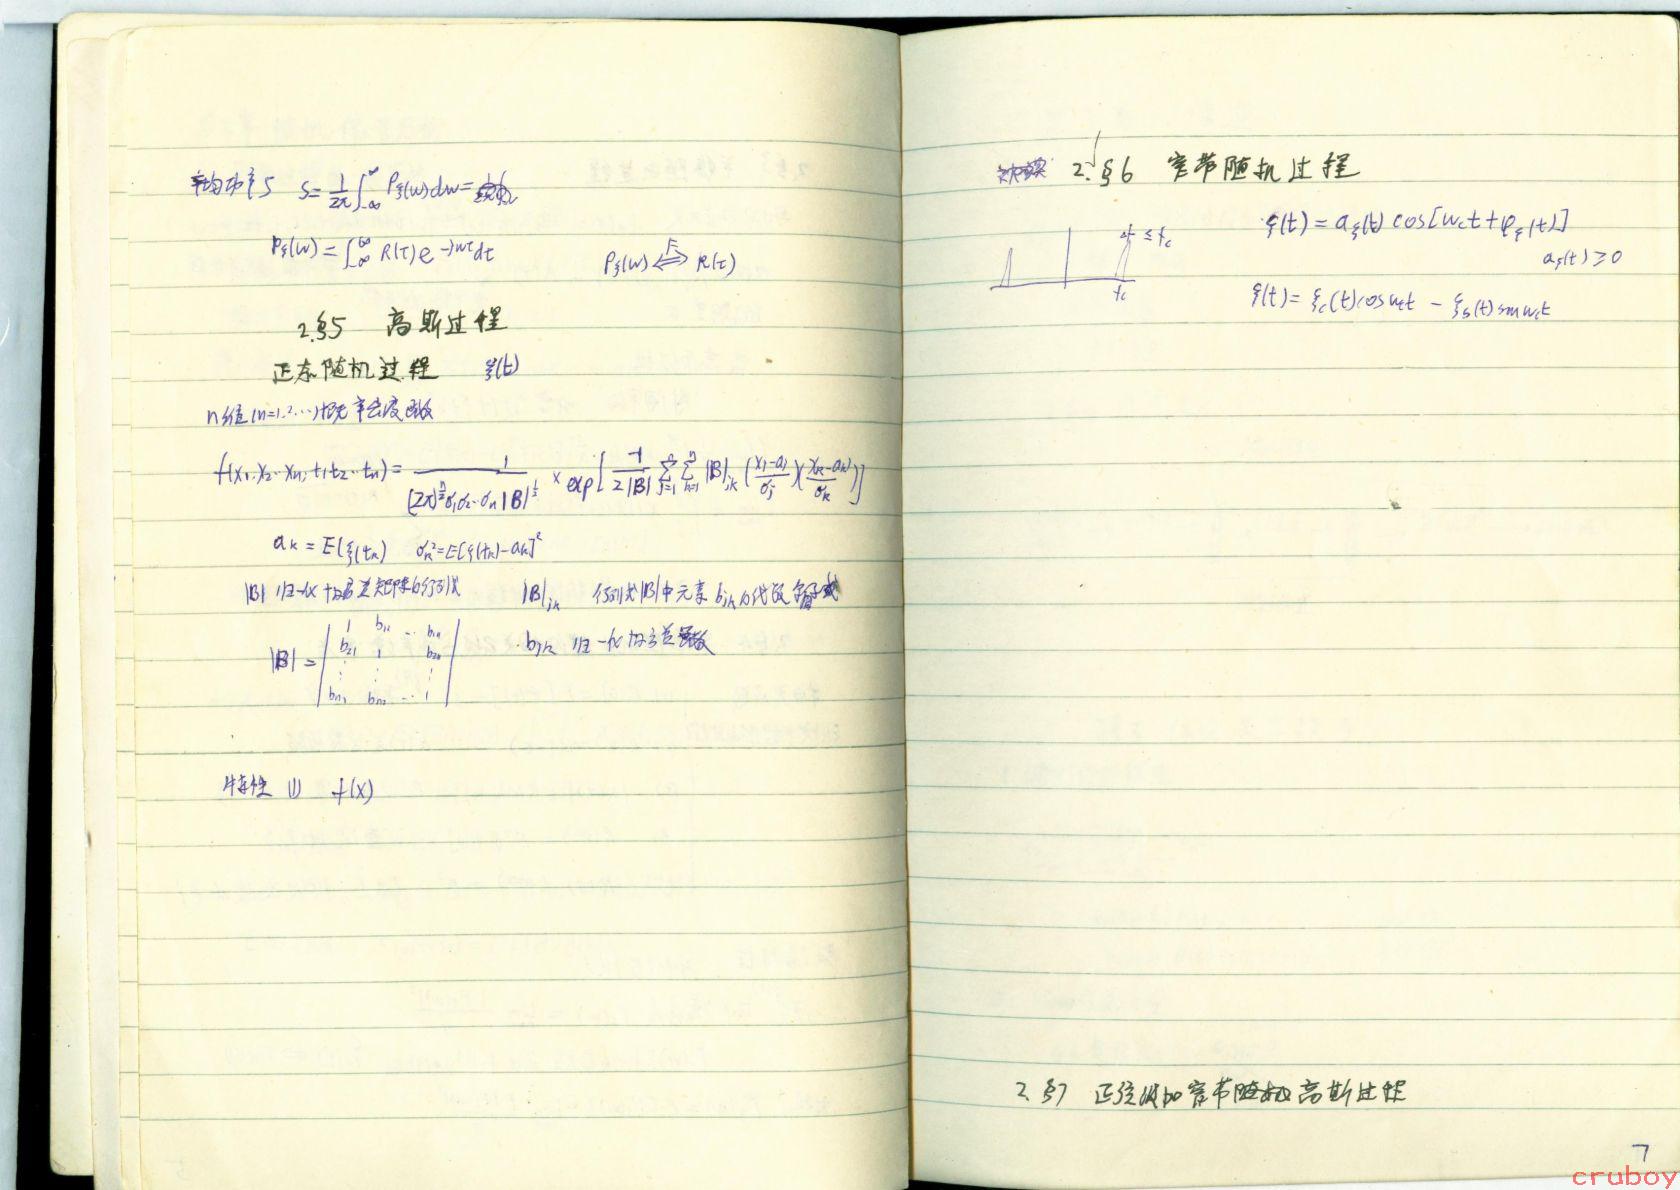 平均功率S S=1/2π ∫_{-∞}^{∞} P_ξ(ω)dω=
P_ξ(ω)=∫_{-∞}^{∞} R(τ)e^{-jωτ}dτ P_ξ(ω) ⇔ R(τ)
2.§5 高斯过程
正态随机过程 ξ(t)
n维(n=1,2…)概率密度函数
f(x₁,x₂…xₙ;t₁t₂…tₙ)= 1/((2π)^{n/2}σ₁σ₂…σₙ|B|^{1/2}) × exp[-1/(2|B|) Σ_{j=1}^{n} Σ_{k=1}^{n} |B|_{jk} ((x_j-a_j)/σ_j)((x_k-a_k)/σ_k)]
a_k=E[ξ(t_k) σ_k²=E[ξ(t_k)-a_k]²
|B| 归一化协方差矩阵的行列式 |B|_{jk} 行列式|B|中元素b_{jk}的代数余子式
|B|= | 1 b₁₂ … b₁ₙ
b₂₁ 1 b₂ₙ
⋮ ⋮ ⋮
bₙ₁ bₙ₂ … 1 |
b_{jk} 归一化协方差函数
特性 (1) f(x)
2.§6 窄带随机过程
ξ(t)=a_ξ(t) cos[ω_c t+φ_ξ(t)]
Δf ≤ f_c
a_ξ(t)≥0
f_c
ξ(t)=ξ_c(t)cosω_c t - ξ_s(t)sinω_c t
2.§7 正弦波加窄带随机高斯过程
7
cruboy